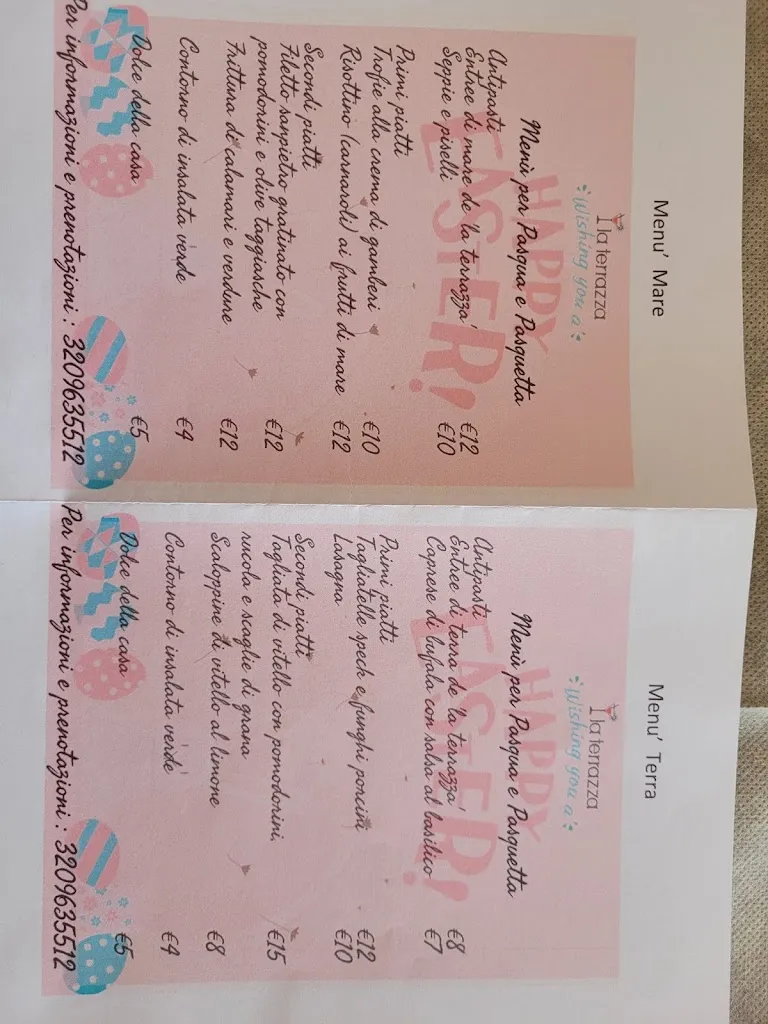 Menu' Mare
la terrazza
Wishing you a
HAPPY
EASTER!
Menù per Pasqua e Pasquetta
Antipasti
Entree di mare de la terrazza €12
Seppie e piselli €10
Primi piatti
Trofie alla crema di gamberi €10
Risottino (carnaroli) ai frutti di mare €12
Secondi piatti
Filetto sanpietro gratinato con
pomodorini e olive taggiasche €12
Frittura di calamari e verdure €12
Contorno di insalata verde €4
Dolce della casa €5
Per informazioni e prenotazioni : 3209635512
Menu' Terra
la terrazza
Wishing you a
HAPPY
EASTER!
Menù per Pasqua e Pasquetta
Antipasti
Entree di terra de la terrazza €8
Caprese di bufala con salsa al basilico €7
Primi piatti
Tagliatelle speck e funghi porcini €12
Lasagna €10
Secondi piatti
Tagliata di vitello con pomodorini,
rucola e scaglie di grana €15
Scaloppine di vitello al limone €8
Contorno di insalata verde €4
Dolce della casa €5
Per informazioni e prenotazioni : 3209635512